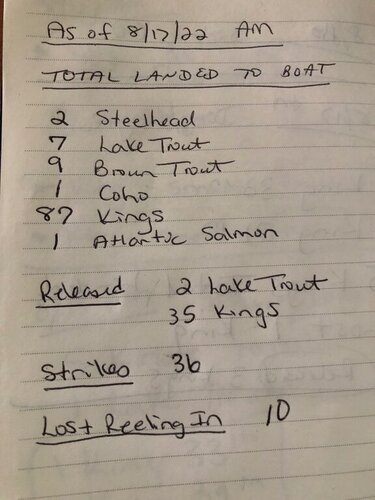 As of 8/17/22 AM
TOTAL LANDED TO BOAT
2 Steelhead
7 Lake Trout
9 Brown Trout
1 Coho
87 Kings
1 Atlantic Salmon
Released 2 Lake Trout
35 Kings
Strikes 36
Lost Reeling In 10